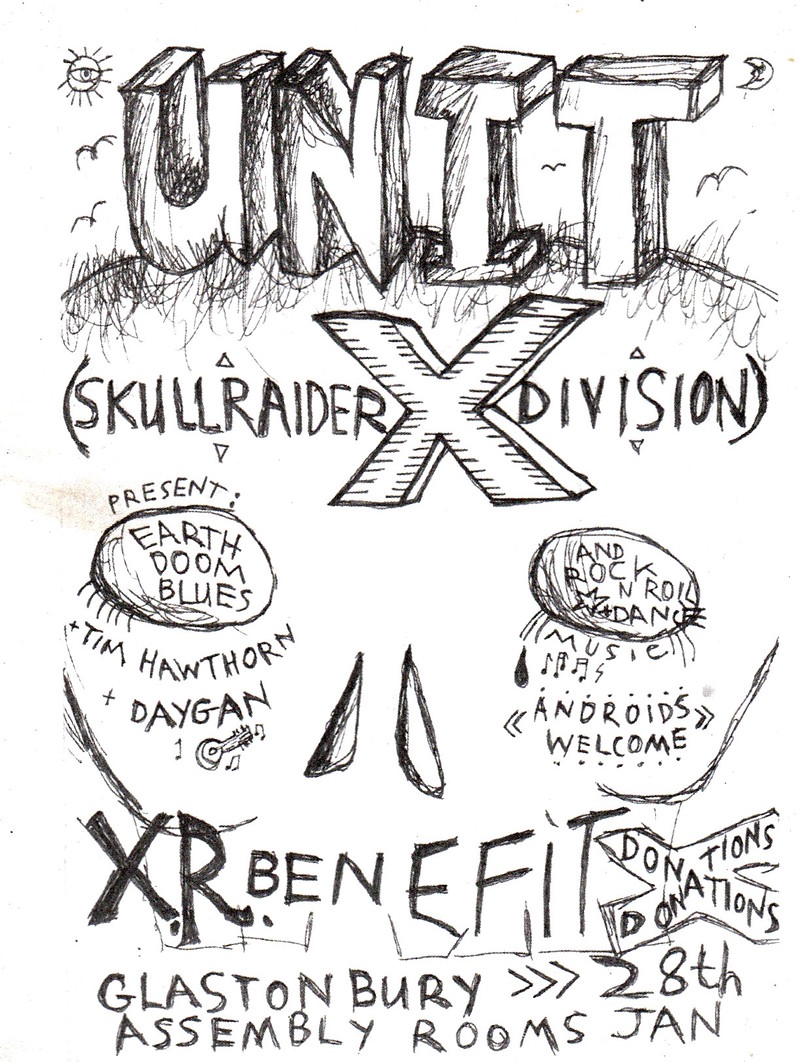 UNIT
X
(SKULLRAIDER DIVISION)
PRESENT:
EARTH
DOOM
BLUES
+TIM HAWTHORN
+ DAYGAN
AND
ROCK
N ROLL
DANCE
MUSIC
«ANDROIDS»
WELCOME
X.R. BENEFIT
DONATIONS
DONATIONS
GLASTONBURY >>> 28th
ASSEMBLY ROOMS JAN